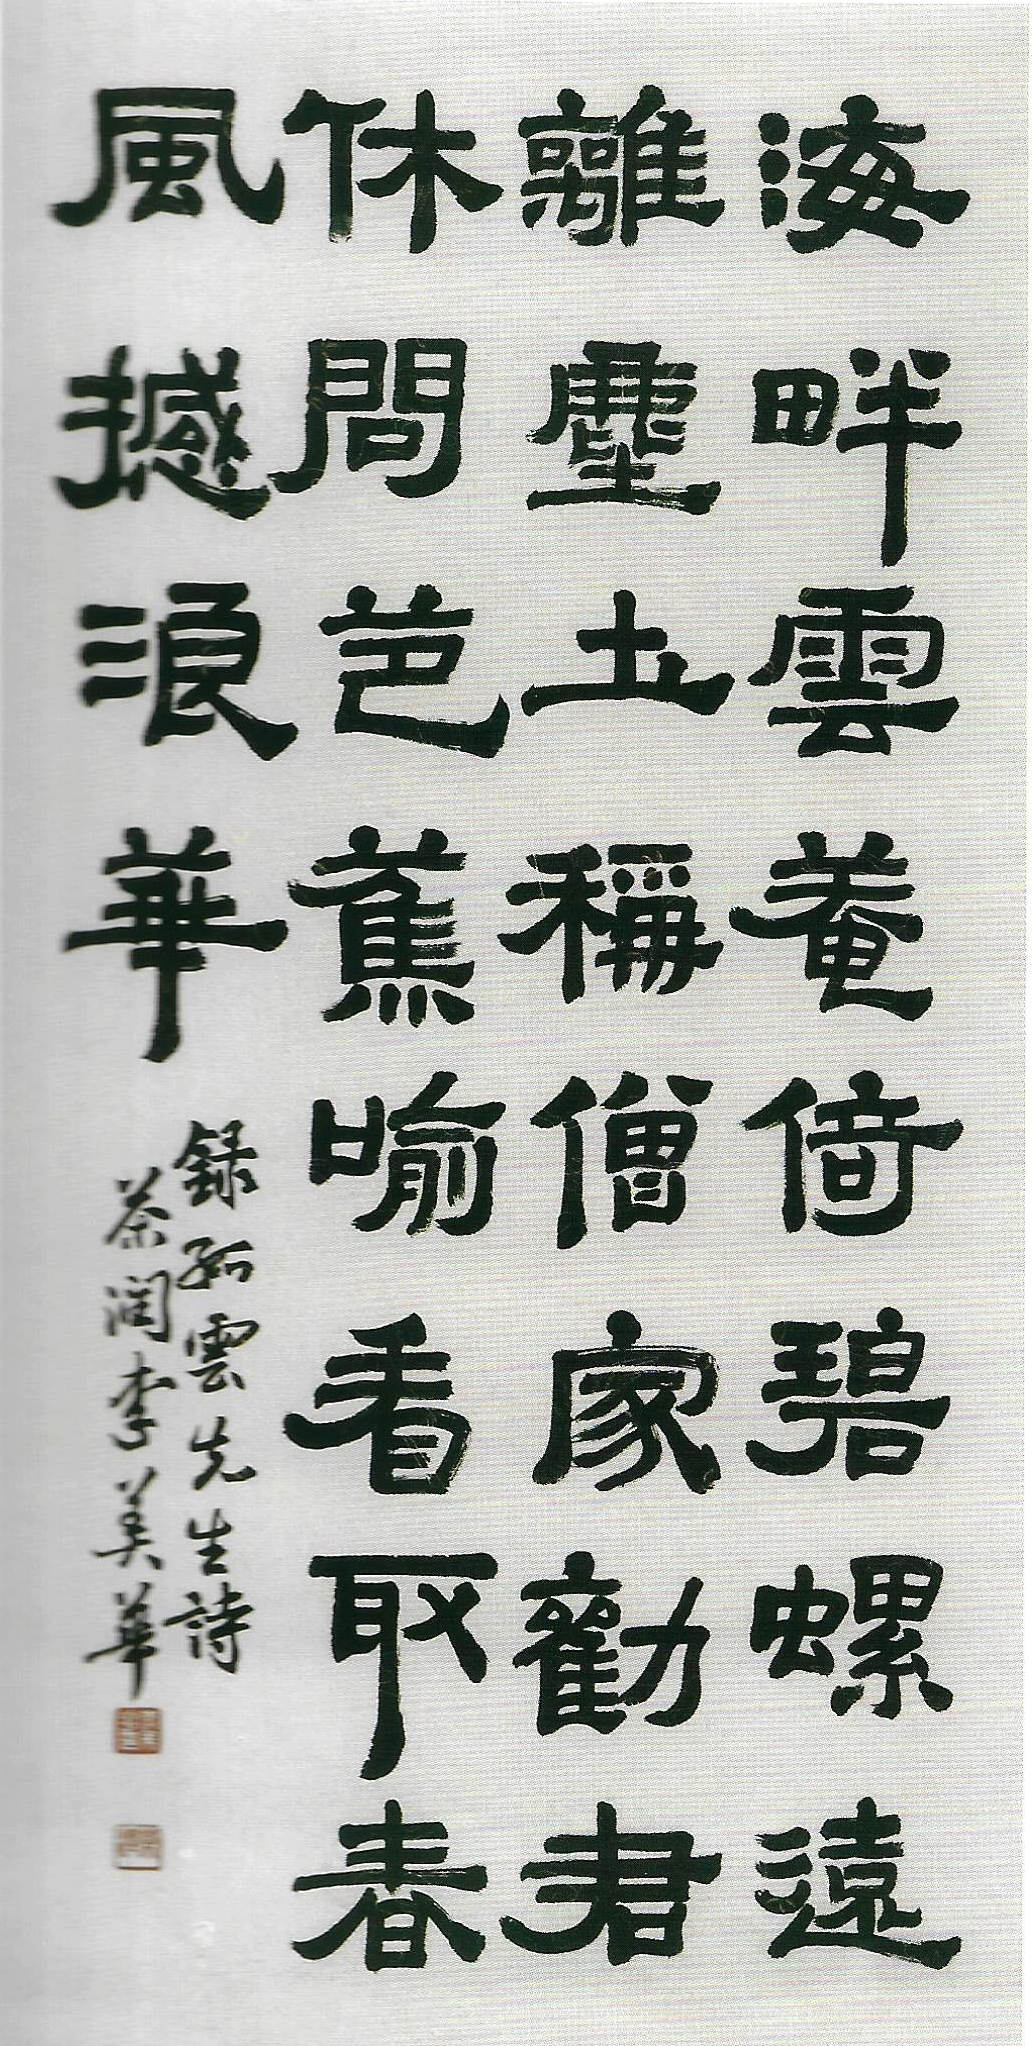 海畔雲菴倚碧螺遠
離塵土稱僧家勸君
休問芭蕉喻看取春
風撼浪華
録孤雲先生詩
茶潤李美華